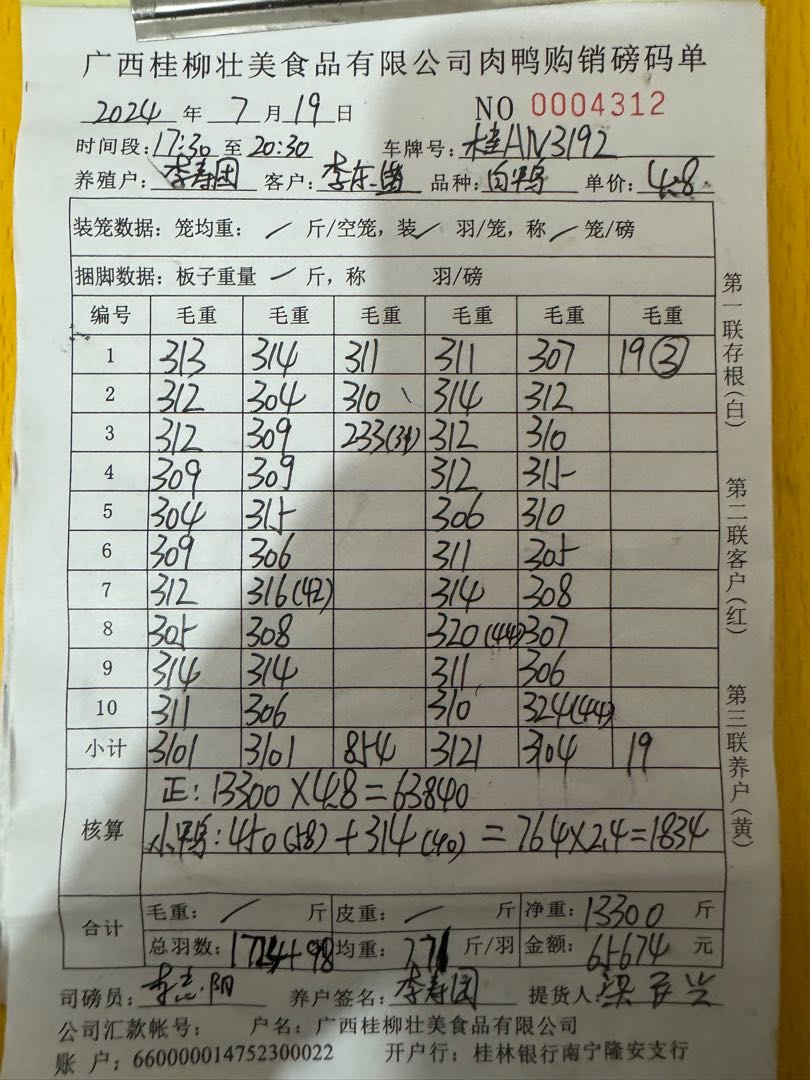 广西桂柳壮美食品有限公司肉鸭购销磅码单
2024 年 7 月 19 日 NO 0004312
时间段：17:30 至 20:30 车牌号：桂AN3192
养殖户：李寿团 客户：李东 品种：白鸭 单价：4.8
装笼数据：笼均重： / 斤/空笼，装 / 羽/笼，称 / 笼/磅
捆脚数据：板子重量 / 斤，称 羽/磅
编号 毛重 毛重 毛重 毛重 毛重 毛重
1 313 314 311 311 307 19 ③
2 312 304 310 314 312
3 312 309 233(31) 312 310
4 309 309 312 315
5 304 315 306 310
6 309 306 311 305
7 312 316(42) 314 308
8 305 308 320(44) 307
9 314 314 311 306
10 311 306 310 324(44)
小计 3101 3101 854 3121 3104 19
核算 正：13300×4.8=63840
小鸭：450(58)+314(40)=764×2.4=1834
合计 毛重： / 斤 皮重： / 斤 净重：13300 斤
总羽数：1724+98 均重：7.71 斤/羽 金额：65674 元
司磅员：李志阳 养户签名：李寿团 提货人：梁
公司汇款帐号： 户名：广西桂柳壮美食品有限公司
账 户：660000014752300022 开户行：桂林银行南宁隆安支行
第一联存根(白) 第二联客户(红) 第三联养户(黄)